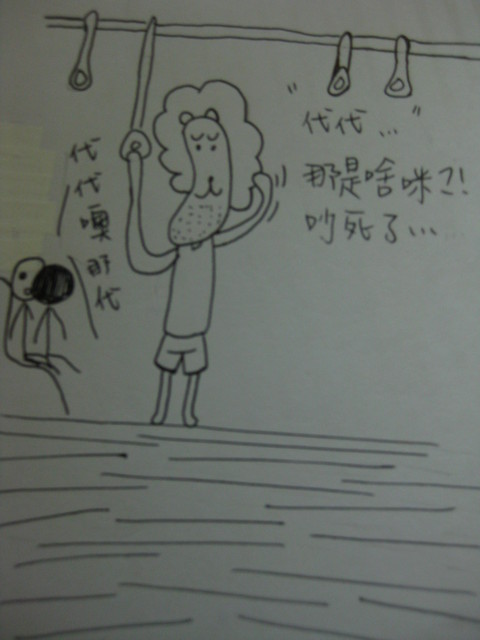 "代代..."
那是啥咪?!
吵死了...
代代噢那代